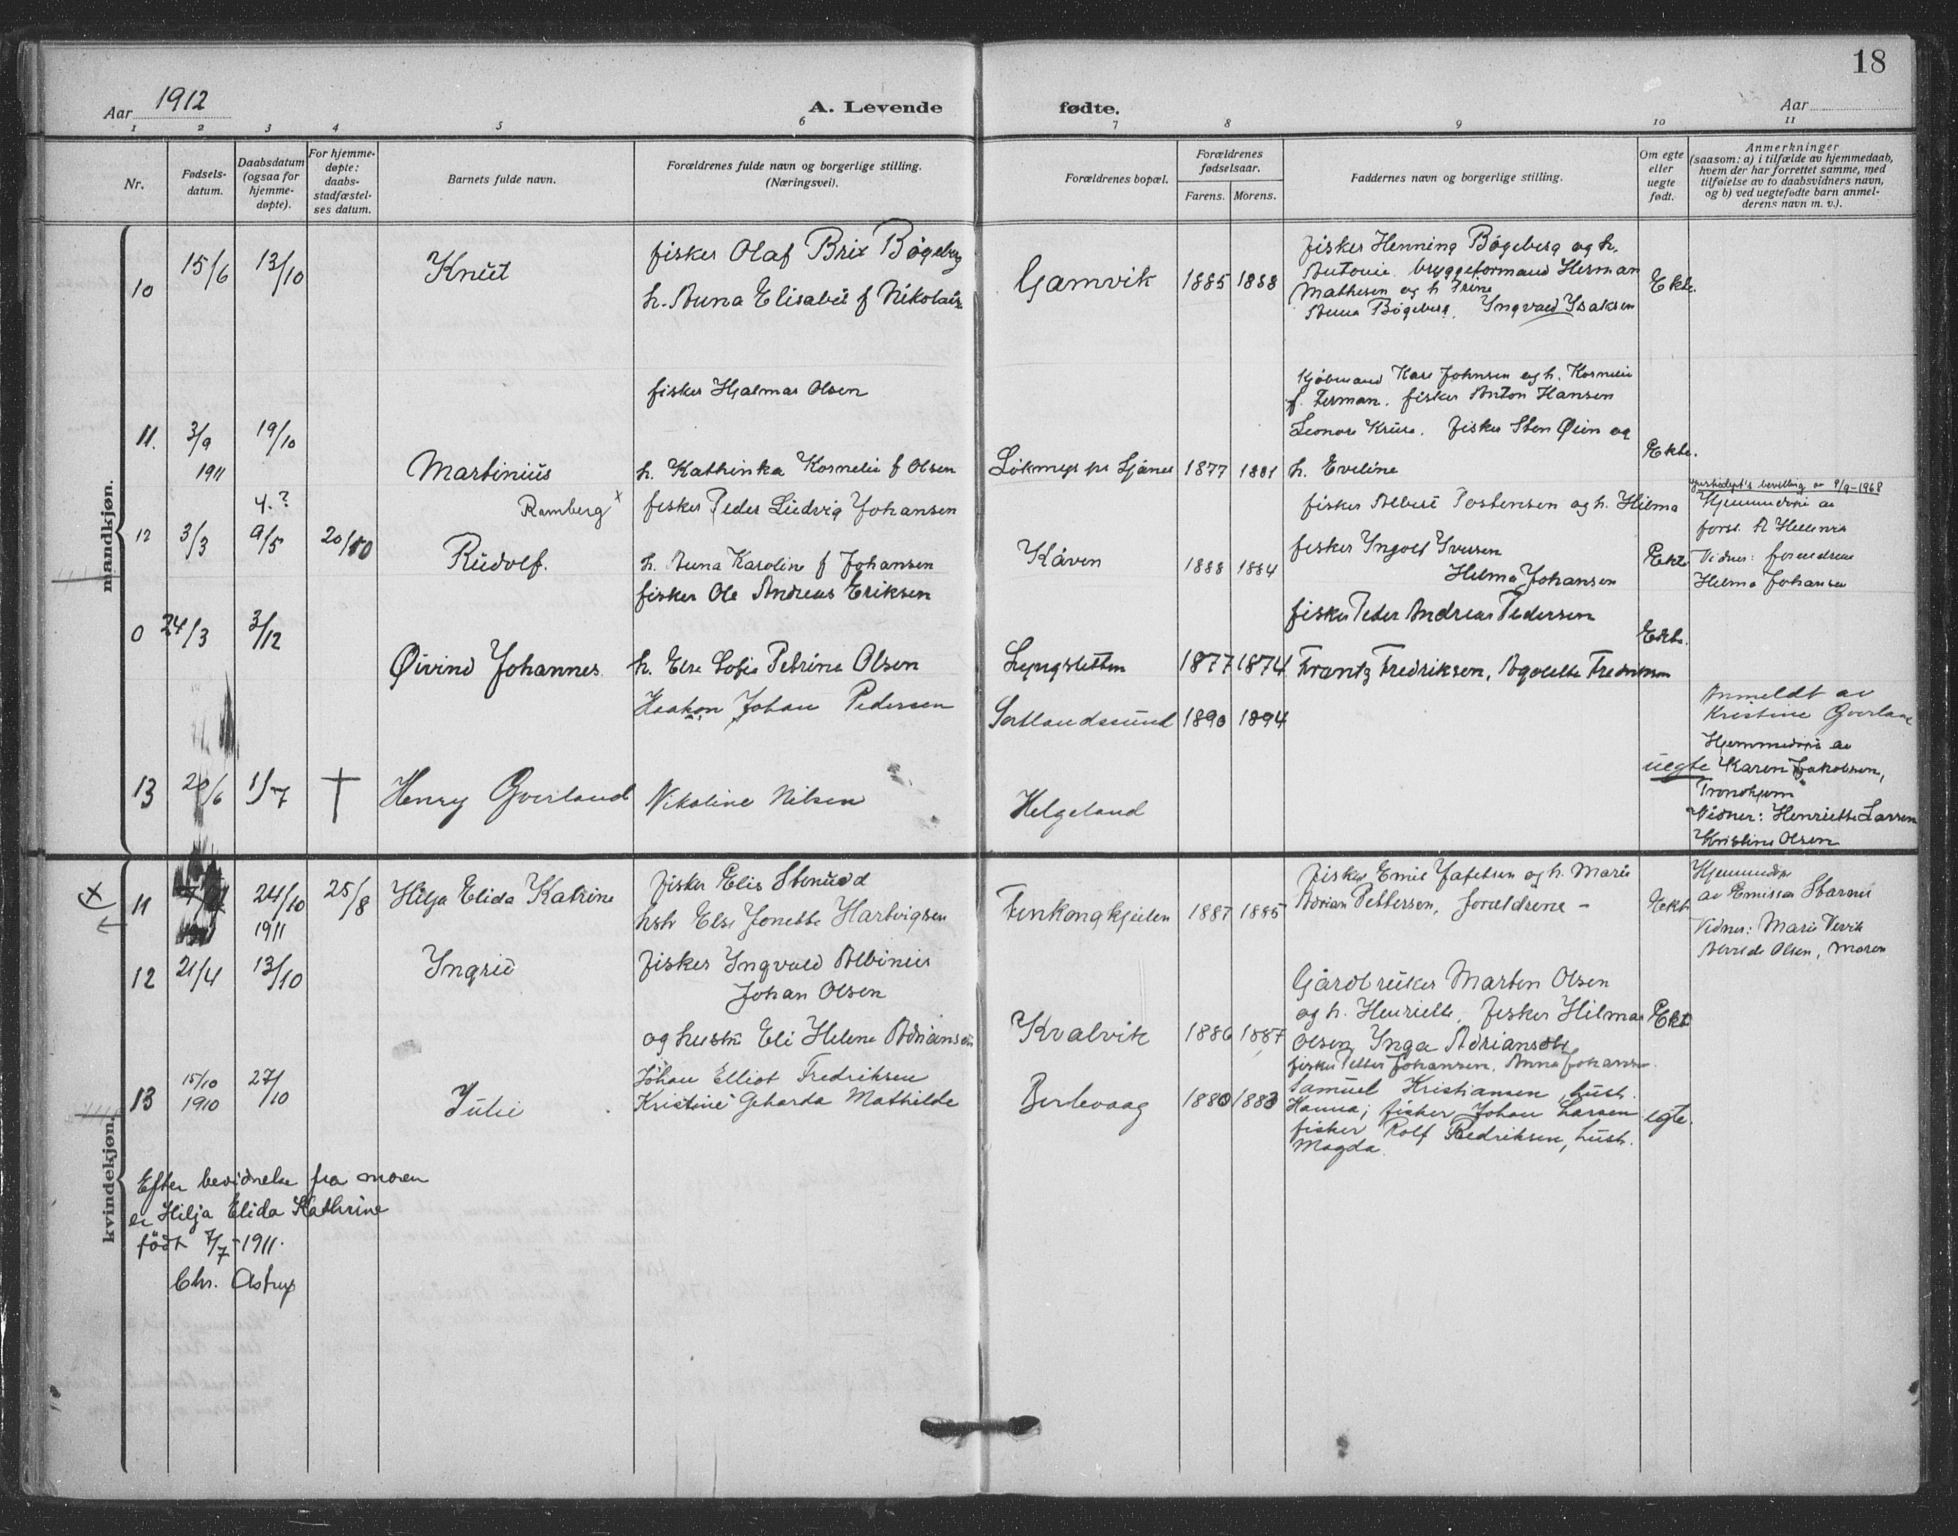 18
Aar 1912
A. Levende fødte.
Aar
1 2 3 4 5 6 7 8 9 10 11
Nr.
Fødsels-
datum.
Daabsdatum
(ogsaa for
hjemme-
døpte).
For hjemme-
døpte:
daabs-
stadfæstel-
ses datum.
Barnets fulde navn.
Forældrenes fulde navn og borgerlige stilling.
(Næringsvei).
Forældrenes bopæl.
Forældrenes
fødselsaar.
Farens. Morens.
Faddernes navn og borgerlige stilling.
Om egte
eller
uegte
født.
Anmerkninger
(saasom: a) i tilfælde av hjemmedaab,
hvem der har forrettet samme, med
tilføielse av to daabsvidners navn,
og b) ved uegtefødte barn anmel-
derens navn m. v.).
mandkjøn.
10 15/6 13/10 Knut
fisker Olaf Brix Bøgeberg
h. Anna Elisabet f Nikolais
Gamvik 1885 1888
fisker Henning Bøgeberg og h.
Antonie. bryggeformand Herman
Mathesen og h Trine
Anna Bøgeberg. Ingvald Isaksen
Ekte.
11. 3/9 1911 19/10
Martinius
fisker Hjalmar Olsen
h. Kathinka Kornelie f Olsen
1877 1881
Kjøbmand Kare Johnsen og h. Kornelie
f. Zerman. fisker Anton Hansen
Leonore Kruse. fisker Sten Øien og
h. Eveline
Ekte.
12 3/3 4.? 9/5 20/10
Ramberg x
Rudolf.
fisker Peder Ludvig Johansen
h. Anna Karoline f Johansen
Kåven 1888 1884
fisker Albert Tostensen og h. Hilma
fisker Ingolf Iversen
Helma Johansen
Ekte
bevilling av 9/9-1968
Hjemmedøpt av
forst. A
Vidner: forældrene
Helma Johansen
0 24/3 3/12
Øivind Johannes
fisker Ole Andreas Eriksen
h. Else Sofie Petrine Olsen
Lyngsletten 1877 1874
fisker Peder Andreas Pedersen
Frantz Fredriksen,
Ekte.
13 20/6 1/7 †
Henry Qverland
Haakon Johan Pedersen
Nikoline Nilsen
Sortlandssund 1890 1894
Helgeland
uegte
Anmeldt av
Kristine Qverland
Hjemmedøpt av
Karen Jakobsen,
Trondhjem
Vidner: Henriette Larsen
Kristine Olsen
kvindekjøn.
x
11 24/10 1911 25/8
Hilja Elida Katrine
fisker Elis Stenud
hstr Else Jonette Hartvigsen
Finkongkjeilen 1887 1885
fisker Emil Jafetsen og h. Marie
Adrian Pettersen, forældrene -
Ekte
Hjemmedøpt
av Emissær
Vidner: Marie
Olsen, Maren
12 21/4 13/10
Ingrid
fisker Ingvald Albinius
Johan Olsen
og hustru Eli Helene Adriansen
Kvalvik 1886 1887
Gårdbruker Marten Olsen
og h. Henriette, fisker Hilmar
Olsen, Inga Adriansen
fisker Petter Johansen, Anna Johansen.
Ekte
13 15/10 1910 27/10
Julie
Johan Elliot Fredriksen
Kristine Geharda Mathilde
Berlevaag 1880 1883
Samuel Kristiansen, hust.
Hanna; fisker Johan Larsen
fisker Rolf Fredriksen, hust.
Magda.
egte.
Efter bevidnelse fra moren
er Hilja Elida Kathrine
født 7/7-1911.
Chr. Astrup